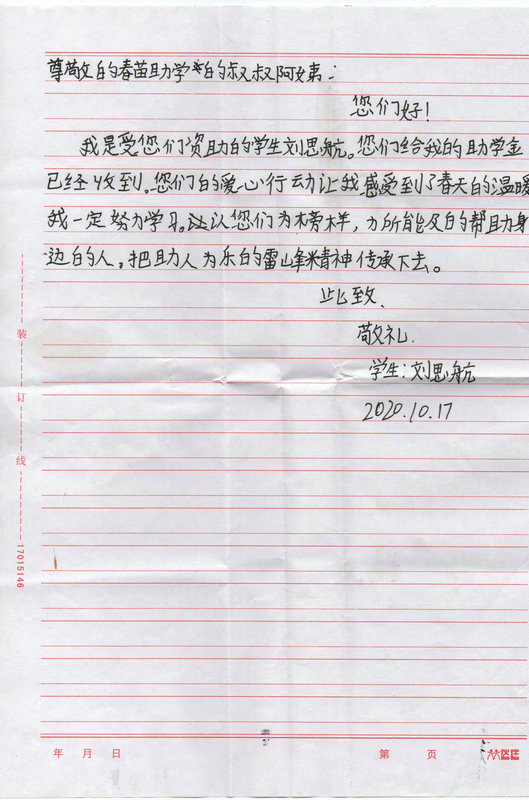 尊敬的春苗助学的叔叔阿姨：
您们好！
我是受您们资助的学生刘思航。您们给我的助学金
已经收到。您们的爱心行动让我感受到了春天的温暖
我一定努力学习。以您们为榜样，力所能及的帮助身
边的人。把助人为乐的雷峰精神传承下去。
此致
敬礼.
学生：刘思航
2020.10.17
装
订
线
17015146
年 月 日
第 页